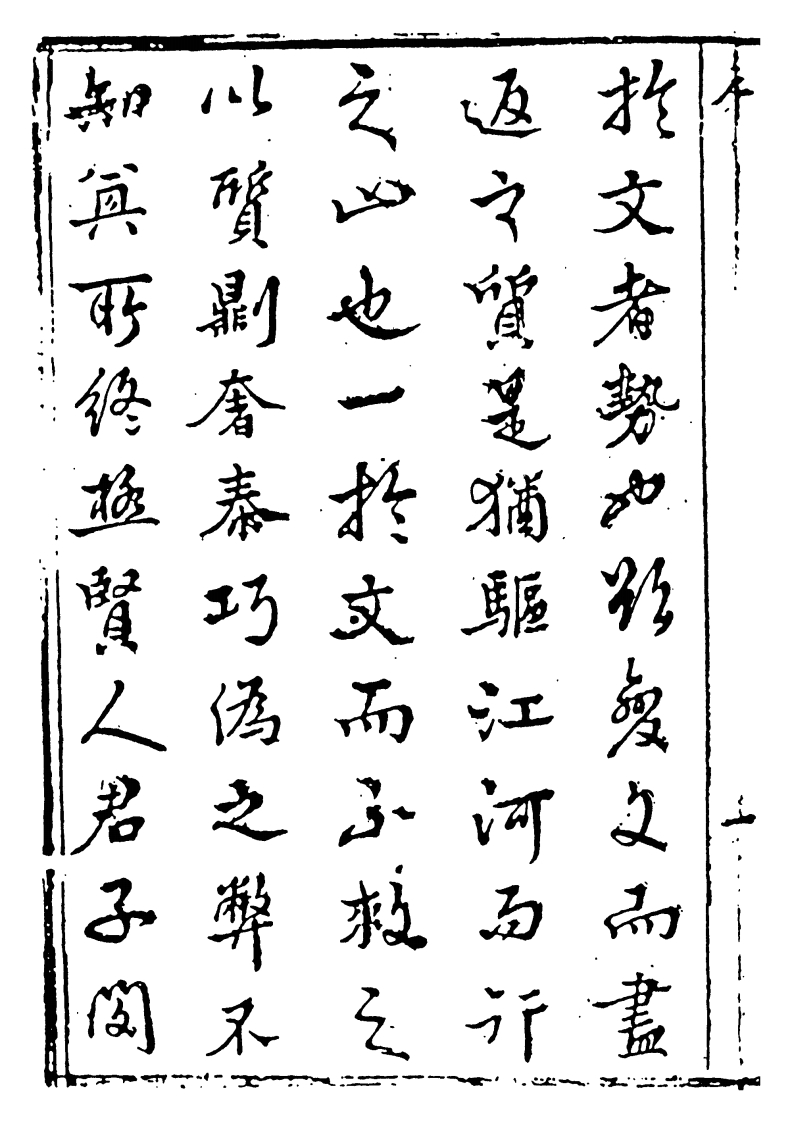 序 一
於文者勢也欲變文而盡
返之質是猶驅江河而行
之山也一於文而不救之
以質則奢泰巧偽之弊不
知其所終極賢人君子閔